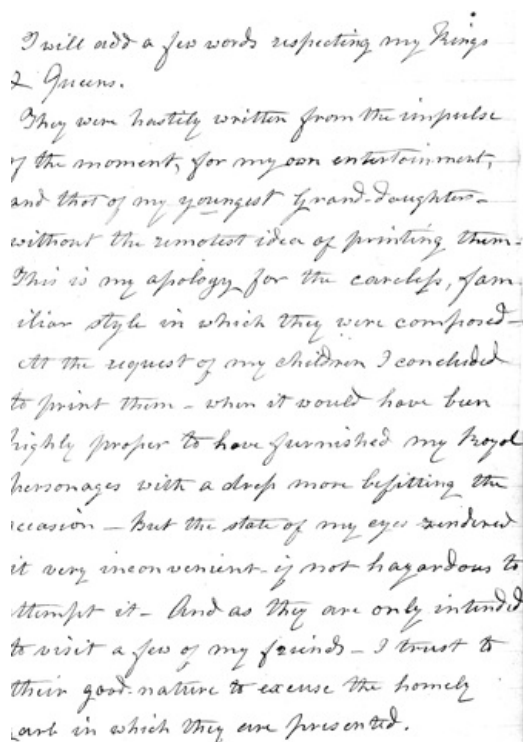 I will add a few words respecting my Kings
& Queens.
They were hastily written from the impulse
of the moment, for my own entertainment,
and that of my youngest Grand-daughters–
without the remotest idea of printing them–
This is my apology for the careless, fam
iliar style in which they were composed–
At the request of my children I concluded
to print them – when it would have been
highly proper to have furnished my Royal
personages with a dress more befitting the
occasion – But the state of my eyes rendered
it very inconvenient – if not hazardous to
attempt it – And as they are only intended
to visit a few of my friends – I trust to
their good-nature to excuse the homely
garb in which they are presented.